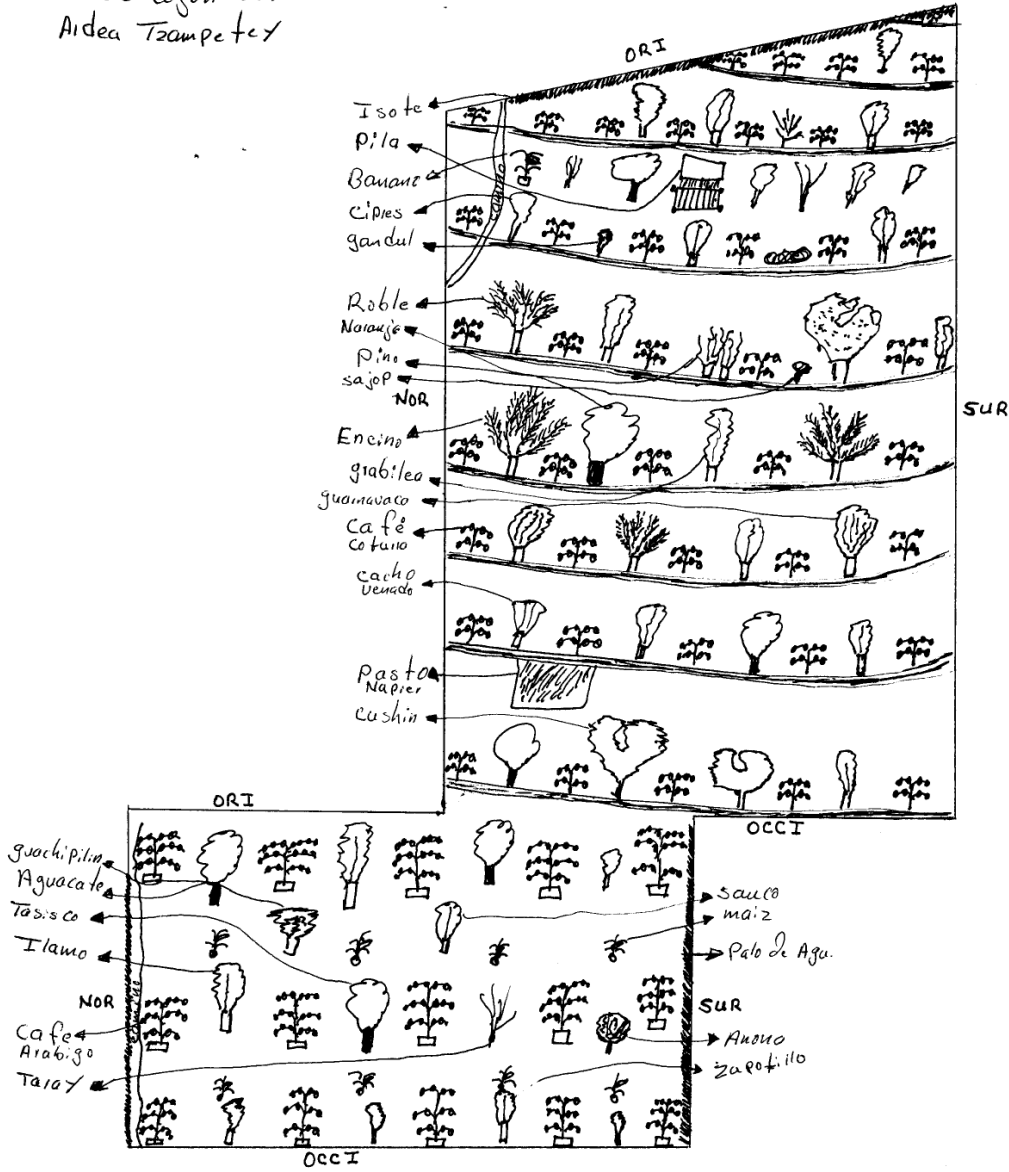 Aldea Tzampetey
ORI
Isote
Pila
Banano
Cipres
gandul
camino
Roble
Naranja
Pino
sajop
NOR
SUR
Encino
grabilea
guamavaco
Café
Coturro
cacho
venado
Pasto
Napier
cushin
OCCI
ORI
guachipilin
Aguacate
Tasisco
Ilamo
NOR
camino
Cafe
Arabigo
Taray
sauco
maiz
Palo de Agu.
SUR
Anono
zapotillo
OCCI